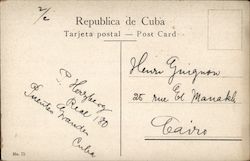 2/2
Republica de Cuba
Tarjeta postal — Post Card
P. Herzberg
Real 180
Puentes Grandes
Cuba
Henri Guignon
25 rue El Manakh
Cairo
No. 75